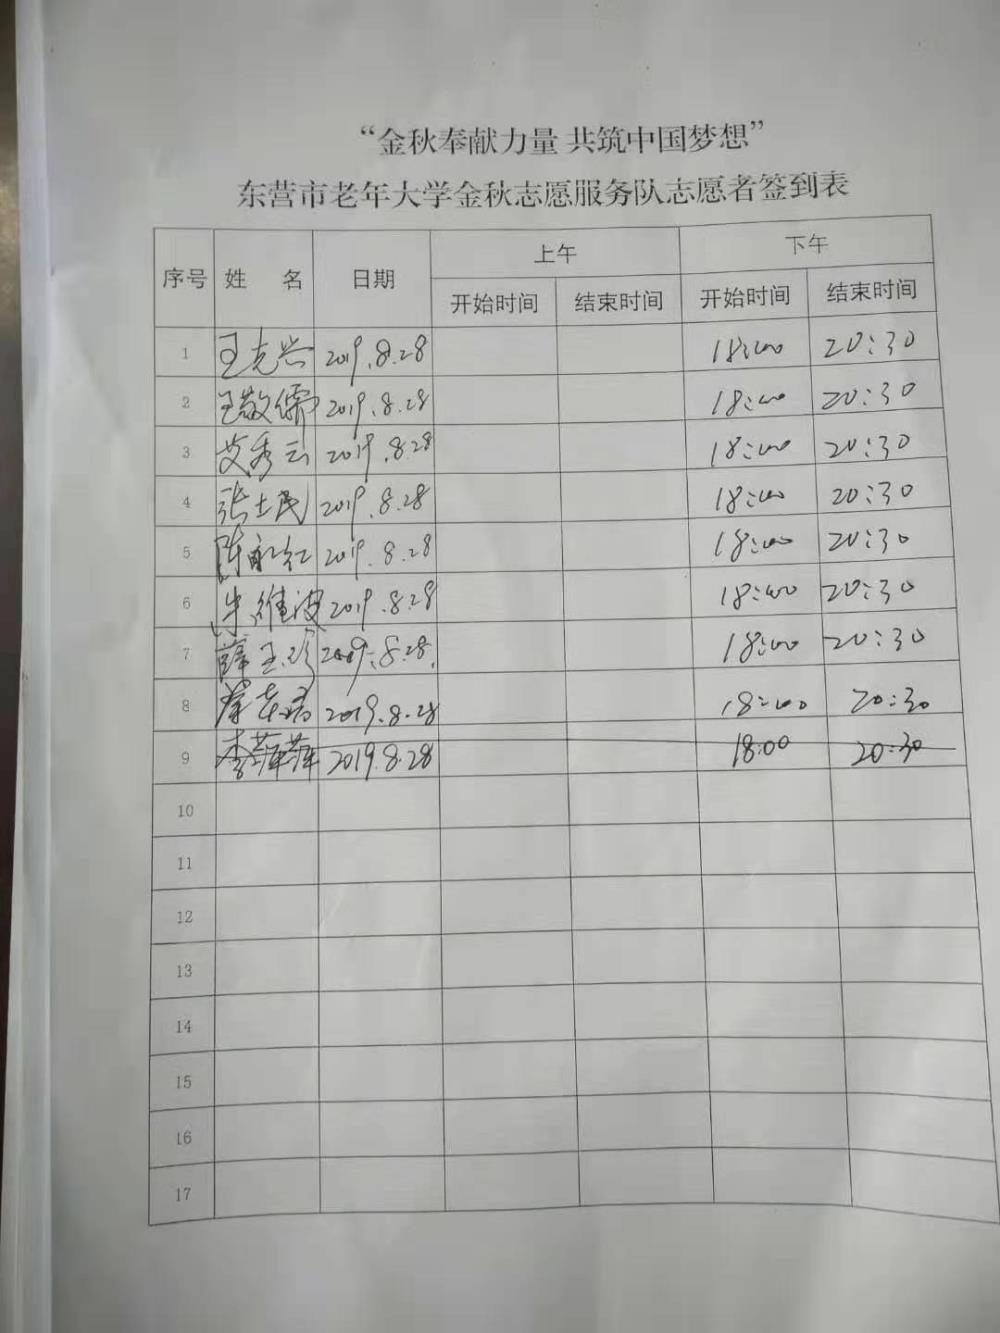 “金秋奉献力量 共筑中国梦想”
东营市老年大学金秋志愿服务队志愿者签到表
序号 姓 名 日期 上午 下午
开始时间 结束时间 开始时间 结束时间
1 王克兴 2019.8.28 18:00 20:30
2 王敬儒 2019.8.28 18:00 20:30
3 艾秀云 2019.8.28 18:00 20:30
4 张士民 2019.8.28 18:00 20:30
5 陈永红 2019.8.28 18:00 20:30
6 朱维波 2019.8.28 18:00 20:30
7 薛玉珍 2019.8.28. 18:00 20:30
8 2019.8.28 18:00 20:30
9 李萍萍 2019.8.28 18:00 20:30
10
11
12
13
14
15
16
17